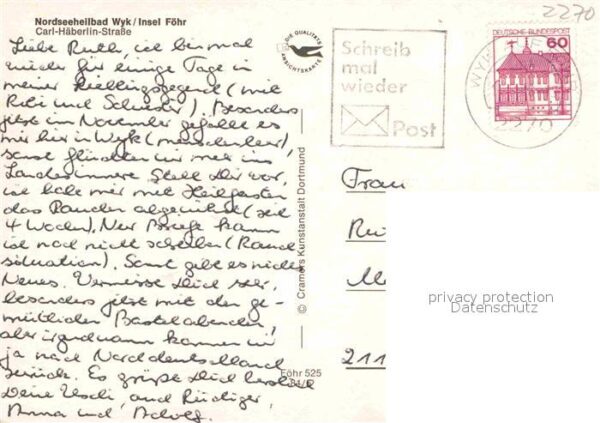 2270
Nordseeheilbad Wyk/Insel Föhr
Carl-Häberlin-Straße
Liebe Ruth, ich bin mal
wieder für einige Tage in
meiner Lieblingsgegend (mit
und Schwester). Besonders
jetzt im November gefällt es
mir hier in Wyk (menschenleer),
sonst flüchten wir mehr ins
Landesinnere. Stell Dir vor,
ich habe mir mit
das Rauchen abgewöhnt (seit
4 Wochen). Nur Briefe kann
ich noch nicht schreiben (Rauch
situation). Sonst gibt es nichts
Neues. Vermisse Dich sehr,
besonders jetzt mit den ge-
mütlichen Bastelabenden,
aber irgendwann kommen wir
ja nach Norddeutschland
zurück. Es grüßt Dich herzlich
Deine Uschi, und Rüdiger,
Anna und
DIE QUALITÄTS
ANSICHTSKARTE
© Cramers Kunstanstalt Dortmund
Föhr 525
Schreib
mal
wieder
Post
DEUTSCHE BUNDESPOST
60
WYK
2270
Frau
211
privacy protection
Datenschutz